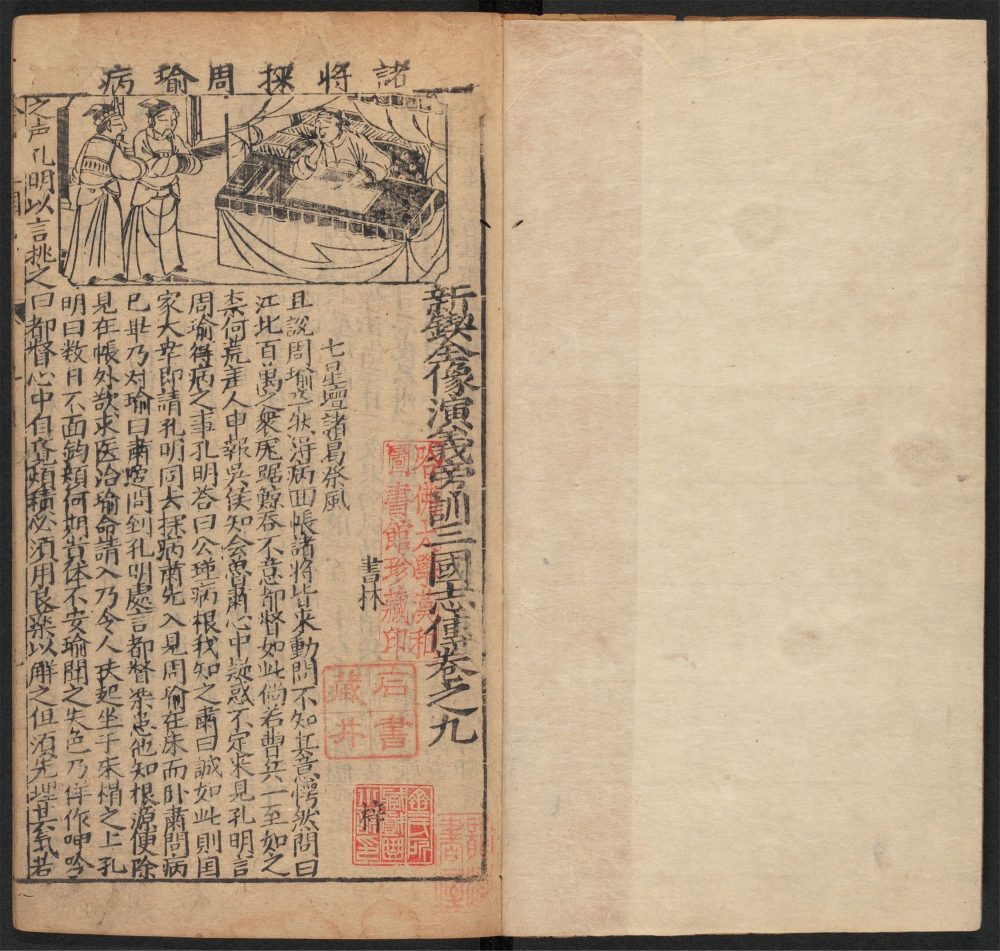 諸將探周瑜病
新鍥全像演義旁訓三國志傳卷之九
書林
梓
七星壇諸葛祭風
且說周瑜忽然得病回帳諸將皆來動問不知其意愕然問曰
江北百萬之衆虎踞鯨吞不意都督如此倘若曹兵一至如之
柰何荒差人申報吳侯知会魯肅心中疑惑不定來見孔明言
周瑜得病之事孔明荅曰公瑾病根我知之肅曰誠如此則囯
家大幸即請孔明同去探病肅先入見周瑜在床而卧肅問病
已畢乃对瑜曰肅適間到孔明處言都督染患他知根源便除
見在帳外欲求医治瑜命請入乃令人扶起坐于床榻之上孔
明曰数日不面鈞顏何期貴体不安瑜聞之失色乃佯作呻吟
之声孔明以言挑之曰都督心中自覚煩積必須用良藥以解之但須先理其氣若
哈佛大學漢和圖書館珍藏印
石書藏井